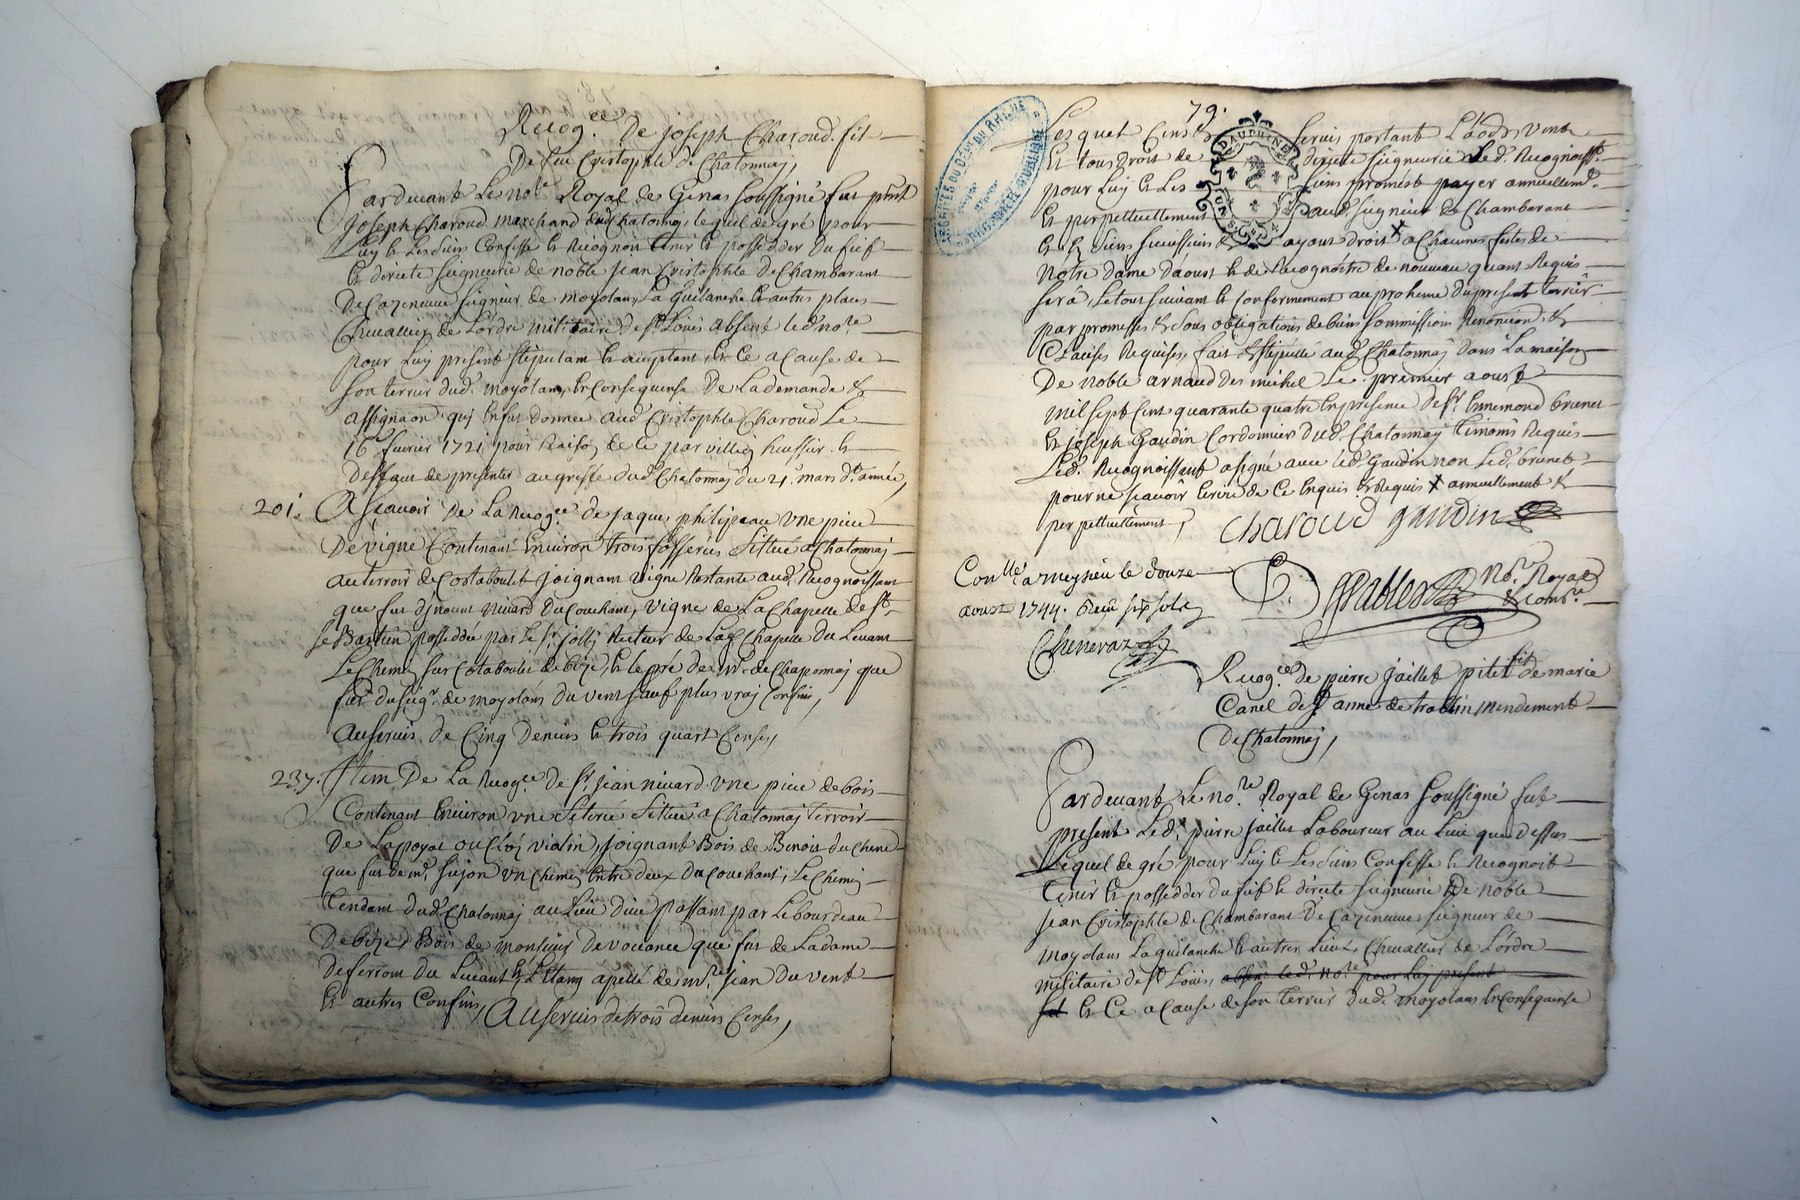 Recog.ce de joseph Charoud fil
De feu Cristophle de Chatonnay,
Pardevant Le no.re Royal de Genas soussigné fut pnt
joseph Charoud marchand du Chatonnay, lequel de gré pour
Luy et Les siens Confesse et Recognoit tenir et posseder Du fief
et directe seigneurie de noble jean Cristophle de Chambarant
De Cazeneuve seigneur de moyolans, La Guilanche et autres places
Chevallier de Lordre militaire de st Louis absent led no.re
pour Luy present stipulant et acceptant, et Ce a Cause de
son terrier dud. moyolans, en Consequense De La demande &
assignaon quy en fut donnée aud. Cristophle Charoud Le
16 fevrier 1721 pour Raison de Ce par villion huissier et
Deffaut de presenter au greffe dud. Chatonnay du 21. mars d.te année,
201. A scavoir De La Recog.ce de jaques philipeau une piece
De vigne Contenant Environ trois fosserées Sittué a Chatonnay
au terroir de Costaboulet joignant vigne Restante aud. Recognoissant
que fut dynoent nivard du Couchant, vigne de La Chapelle de st
se Bastien possedée par Le sr jolly Recteur de Lad. Chapelle du Levant
Le Chemin sur Costaboulet de bize, et le pré de mr. de Chaponnay que
fut du seigr. de moyolans du vent sauf plus vray Confins,
Au servis de Cinq Deniers et trois quart Censes,
237. Item De La Recog.ce De sr. jean nivard une piece de bois
Contenant Environ une seterée Sittué a Chatonnay terroir
De Lapoyat ou Cloz violin, joignant Bois de Benoit du Chene
que fut de mr. sujon un Chemin entre deux du Couchant, Le Chemin
tendant dud. Chatonnay au Lieu dieu passant par Le bourdeau
De bize, Bois de monsieur de vocance que fut de La dame
de ferrom du Levant et L'Etang apellé de mr.re jean du vent
et autres Confins, Au servis de trois deniers Censes,
79.
Lesquet Cens & servis portant Laods, vente
et tous droit de directe seigneurie Led. Recognoisst.
pour Luy et Les siens promest payer annuellemt.
et perpettuellement aud. seigneur de Chambarant
et es siens successeurs & ayant droit x a Chacunes festes de
notre dame d'aoust et de Recognoitre de nouveau quant Requis
sera, Le tout suivant et Conformement au proheme du present terrier
par promesses & sous obligations de biens soummissions Renonciaons &
Clauses Requises, fait & stipulé aud. Chatonnay Dans La maison
De noble arnaud des michel Le premier aoust
mil sept Cent quarante quatre en presence de sr. Ennemond brunet
et joseph Gaudin Cordonnier Dud. Chatonnay temoins Requis
Led. Recognoissant a signé avec led. Gaudin non Led. brunet
pour ne scavoir Ecrire de Ce Enquis & Requis x annuellement &
perpettuellement,
Charoud gaudin
Conlle a meysieu le douze
aoust 1744. Reçu six sols
Chenevaz
Pabler no.re Royal
& com.re
Recog.ce de pierre jaillet pitet fils de marie
Canel de st anne de trablin, mendement
De Chatonnay,
Pardevant Le no.re Royal de Genas Soussigné fut
present Led. pierre jaillet Laboureur au Lieu que dessus
Lequel de gré pour Luy et Les siens Confesse et Recognoit
tenir et posseder du fief et directe seigneurie De noble
jean Cristophle de Chambarant De Cazeneuve seigneur de
moyolans La guilanche et autres Lieux, Chevallier de L'ordre
militaire de st Louis, absent led. no.re pour Luy present
et Ce a Cause de son terrier dud. moyolans en Consequense
DAUPHINE
ARCHIVES DU DEP.T DU RHONE